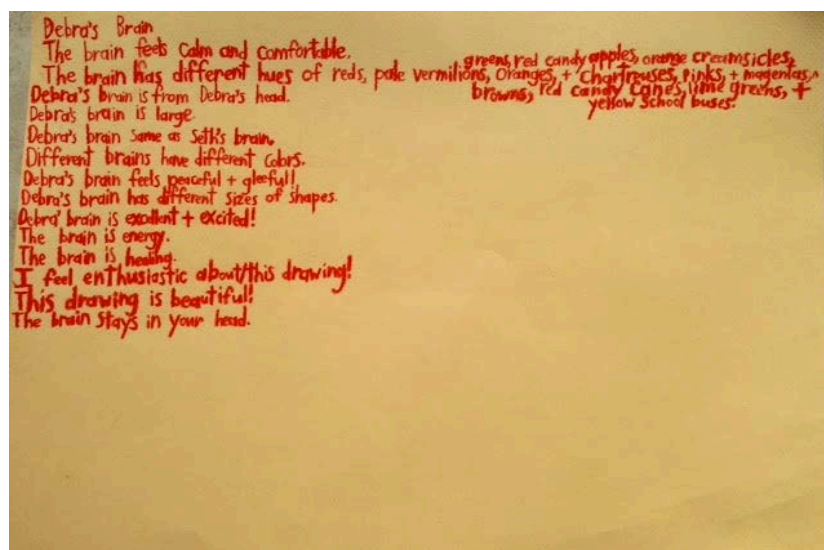 Debra's Brain
The brain feels calm and comfortable.
greens, red candy apples, orange creamsicles,
The brain has different hues of reds, pale vermilions, oranges, + chartreuses, pinks, + magentas,
Debra's brain is from Debra's head.
browns, red candy canes, lime greens, +
yellow school buses.
Debra's brain is large.
Debra's brain same as Seth's brain.
Different brains have different colors.
Debra's brain feels peaceful + gleeful!
Debra's brain has different sizes of shapes.
Debra' brain is excellent + excited!
The brain is energy.
The brain is healing.
I feel enthusiastic about this drawing!
This drawing is beautiful!
The brain stays in your head.